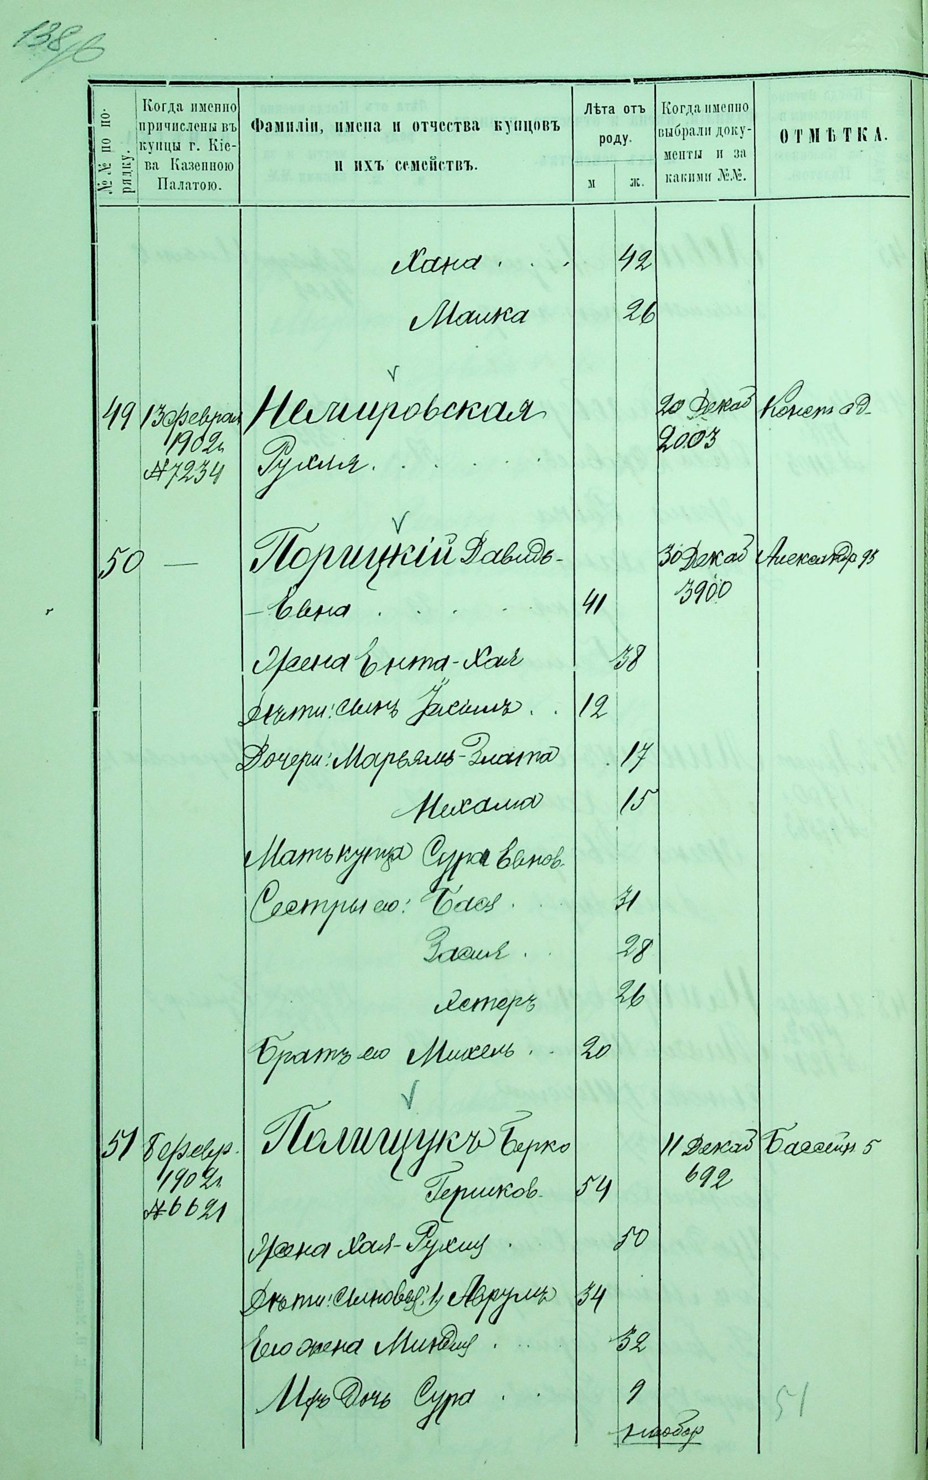 138б
№№ по по-
рядку.
Когда именно
причислены въ
купцы г. Кіе-
ва Казенною
Палатою.
Фамиліи, имена и отчества купцовъ
и ихъ семействъ.
Лѣта отъ
роду.
м ж.
Когда именно
выбрали доку-
менты и за
какими №№.
ОТМѢТКА.
Хана 42
Малка 26
49 13 Феврал Немировская 20 Декаб
1902 2003
№7234 Рухля
50 — Порицкій Давидъ- 30 Декаб
Евна 41 3900
Жена Ента-Хая 38
Дѣти: сынъ 12
Дочери: Марьямъ-Злата 17
Нехама 15
Мать купца Сура Евнов.
Сестры его: Бася 31
Зисля 28
Эстеръ 26
Братъ его Михель 20
51 8 Февр. Полищукъ Берко 11 Декаб Бассейн 5
1902 692
№6621 Гершков. 54
Жена Хая-Рухля 50
Дѣти: сыновья: 1, Аврумъ 34
Его жена Миндля 32
Ихъ Дочь Сура 9
на обор
51